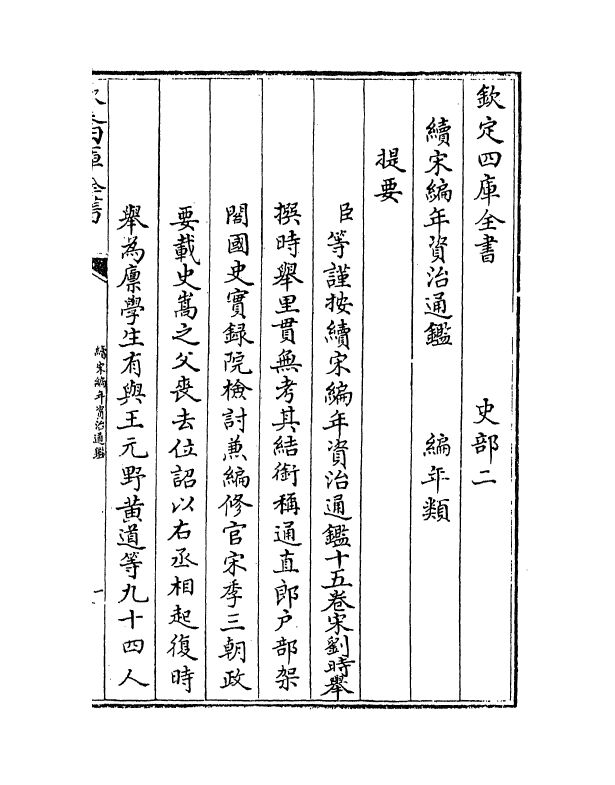 欽定四庫全書 史部二
續宋編年資治通鑑 編年類
提要
臣等謹按續宋編年資治通鑑十五卷宋劉時舉
撰時舉里貫無考其結銜稱通直郎户部架
閣國史實録院檢討兼編修官宋季三朝政
要載史嵩之父喪去位詔以右丞相起復時
舉為廪學生有與王元野黄道等九十四人
欽定四庫全書
續宋編年資治通鑑
一